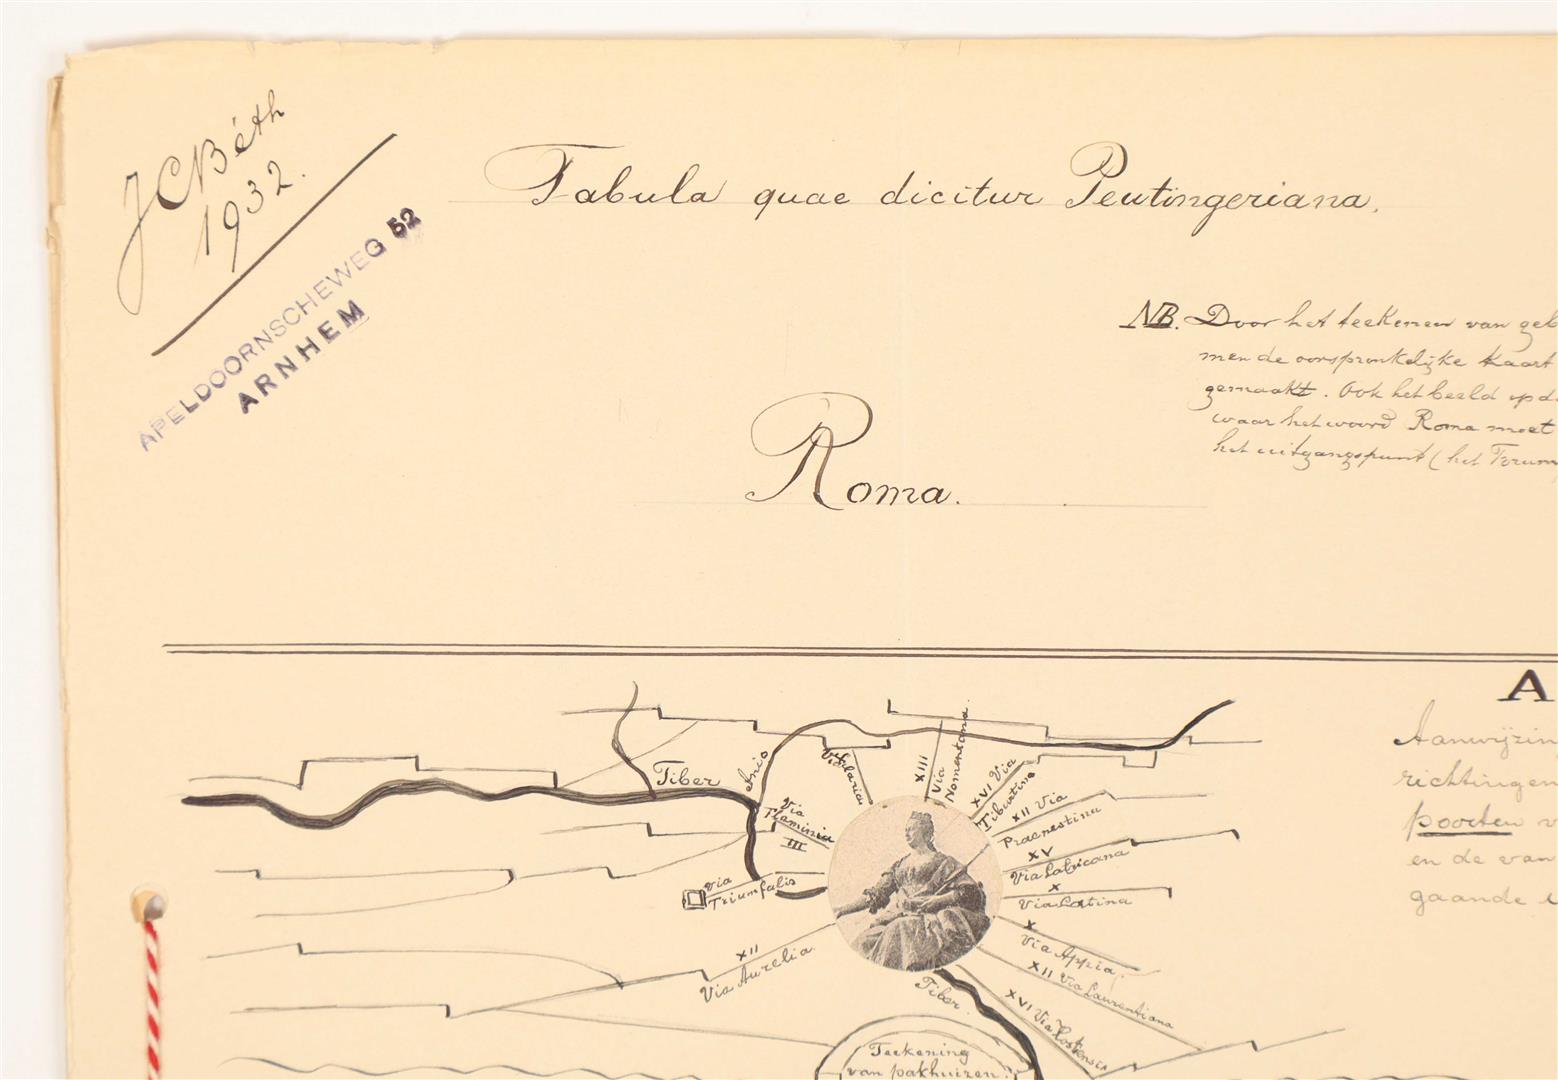 JC Béth
1932.
APELDOORNSCHEWEG 52
ARNHEM
Tabula quae dicitur Peutingeriana.
NB. Door het teekenen van geb
men de oorspronkelijke kaart
gemaakt. Ook het beeld op d
waar het woord Roma moet
het uitgangspunt (het Forum
Roma.
A
Aanwijzin
richtingen
poorten v
en de van
gaande
Tiber
Anio
Via
Salaria
XIII
Via
Nomentana.
XVI Via
Tiburtina
XII Via
Praenestina
XV
Via Labicana
X
Via Latina
X
Via Appia.
XII Via Laurentiana
XVI Via Hostensis
Via
Flaminia
III
Via
Triumfalis
XII
Via Aurelia.
Tiber.
Teekening
van pakhuizen.